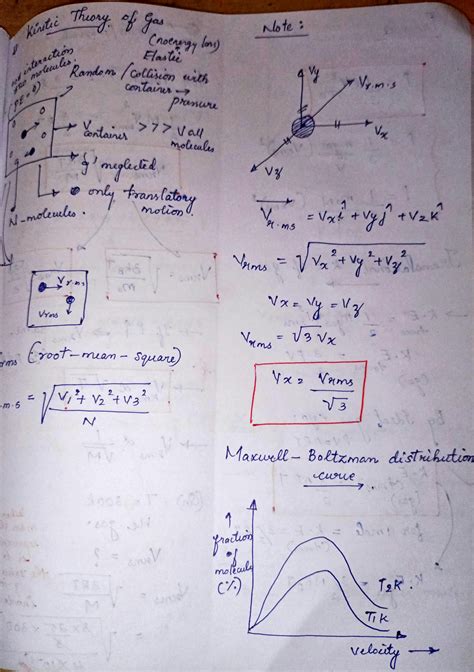 Kinetic Theory of Gas
(no energy loss)
Elastic
no interaction
molecules.
Random / Collision with
container →
pressure
(PE = 0)
→ V container >>> V all molecules
→ 'g' neglected
→ only translatory
motion.
N-molecules.
Vr.m.s
Vrms
rms (root-mean-square)
r.m.s = √ V₁² + V₂² + V₃² / N
Note :
Vy
Vr.m.s
Vx
Vz
Vr.ms = Vx î + Vy ĵ + Vz k̂
Vrms = √ Vx² + Vy² + Vz²
Vx = Vy = Vz
Vrms = √3 Vx
Vx = Vrms / √3
Maxwell - Boltzman distribution
curve
↑
fraction
of
molecule
(%)
T₂K
T₁K
velocity →